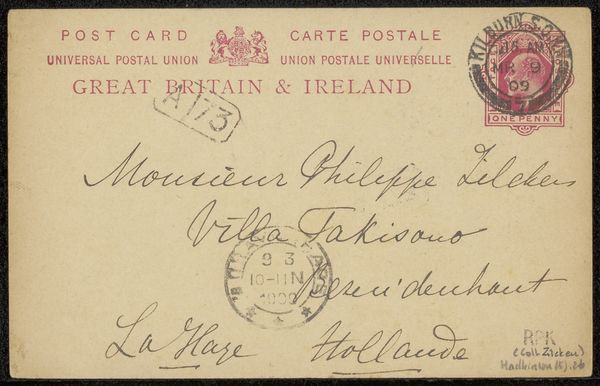 POST CARD CARTE POSTALE
UNIVERSAL POSTAL UNION UNION POSTALE UNIVERSELLE
GREAT BRITAIN & IRELAND
KILBURN S.O. N.W
MR 9
09
7
ONE PENNY
A 173
Monsieur Philippe Zilcken
Villa Takisono
9 3
10-11 N
1909
Bezuidenhout
La Haye Hollande
RPK
(Coll Zilcken)